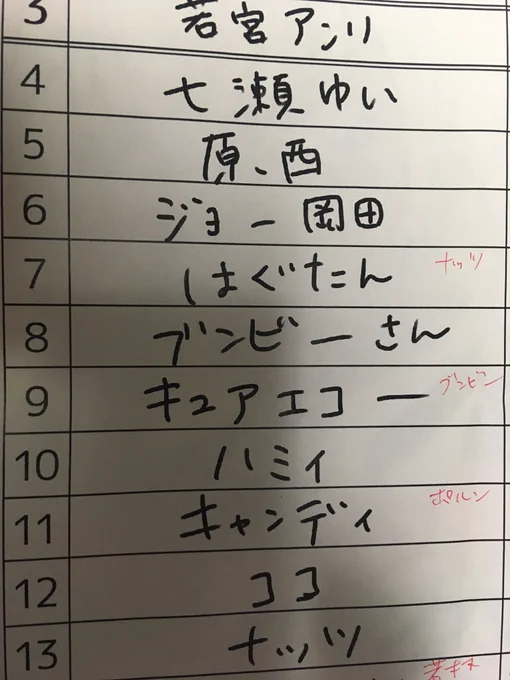 3 若宮アンリ
4 七瀬ゆい
5 原、西
6 ジョー岡田
7 はぐたん ナッツ
8 ブンビーさん
9 キュアエコー ブンビー
10 ハミィ
11 キャンディ ポルン
12 ココ
13 ナッツ